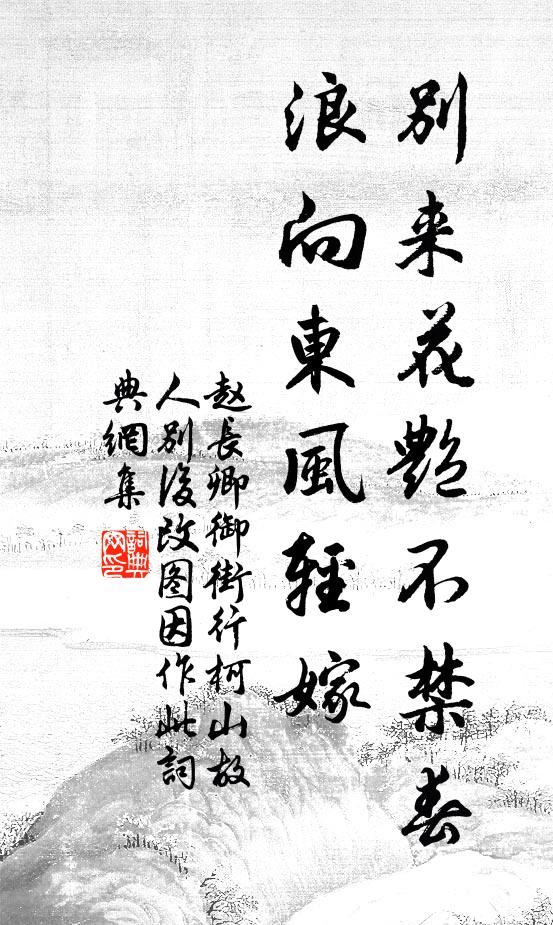 別来花艷不禁春
浪向東風輕嫁
赵長卿御街行柯山故
人別後改图因作此詞
典網集
詞典
网印